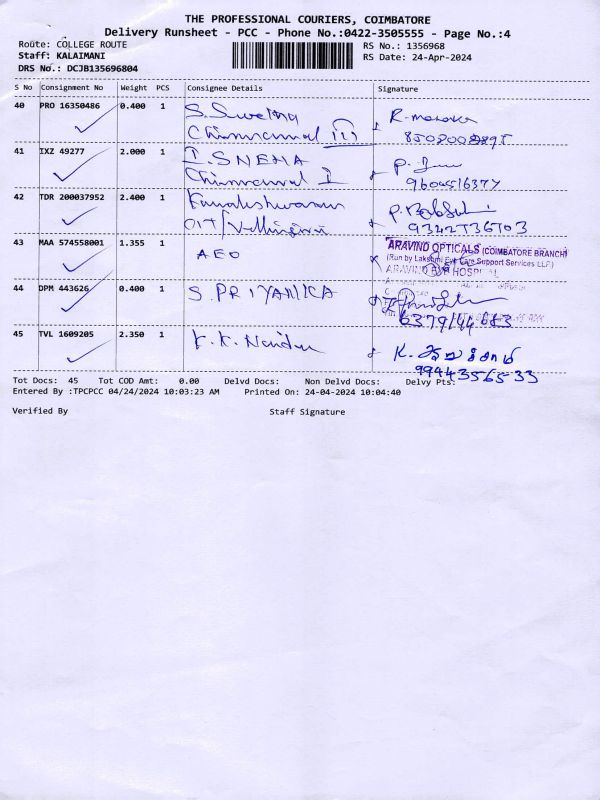 THE PROFESSIONAL COURIERS, COIMBATORE
Delivery Runsheet - PCC - Phone No.:0422-3505555 - Page No.:4
Route: COLLEGE ROUTE RS No.: 1356968
Staff: KALAIMANI RS Date: 24-Apr-2024
DRS No.: DCJB135696804
S No Consignment No Weight PCS Consignee Details Signature
40 PRO 16350486 0.400 1 S. Swetha
Chinnammal III
41 IXZ 49277 2.000 1 I. SNEHA P.
Chinnammal I 9604516377
42 TDR 200037952 2.400 1 Kamaleshwaran P.
OIT/
43 MAA 574558001 1.355 1 AEO ARAVIND OPTICALS (COIMBATORE BRANCH)
(Run by Lakshmi Eye Care Support Services LLP)
ARAVIND EYE HOSPITAL
44 DPM 443626 0.400 1 S. PRIYANKA
6379144683
45 TVL 1609205 2.350 1 K. K. K.
9944356533
Tot Docs: 45 Tot COD Amt: 0.00 Delvd Docs: Non Delvd Docs: Delvy Pts:
Entered By :TPCPCC 04/24/2024 10:03:23 AM Printed On: 24-04-2024 10:04:40
Verified By Staff Signature